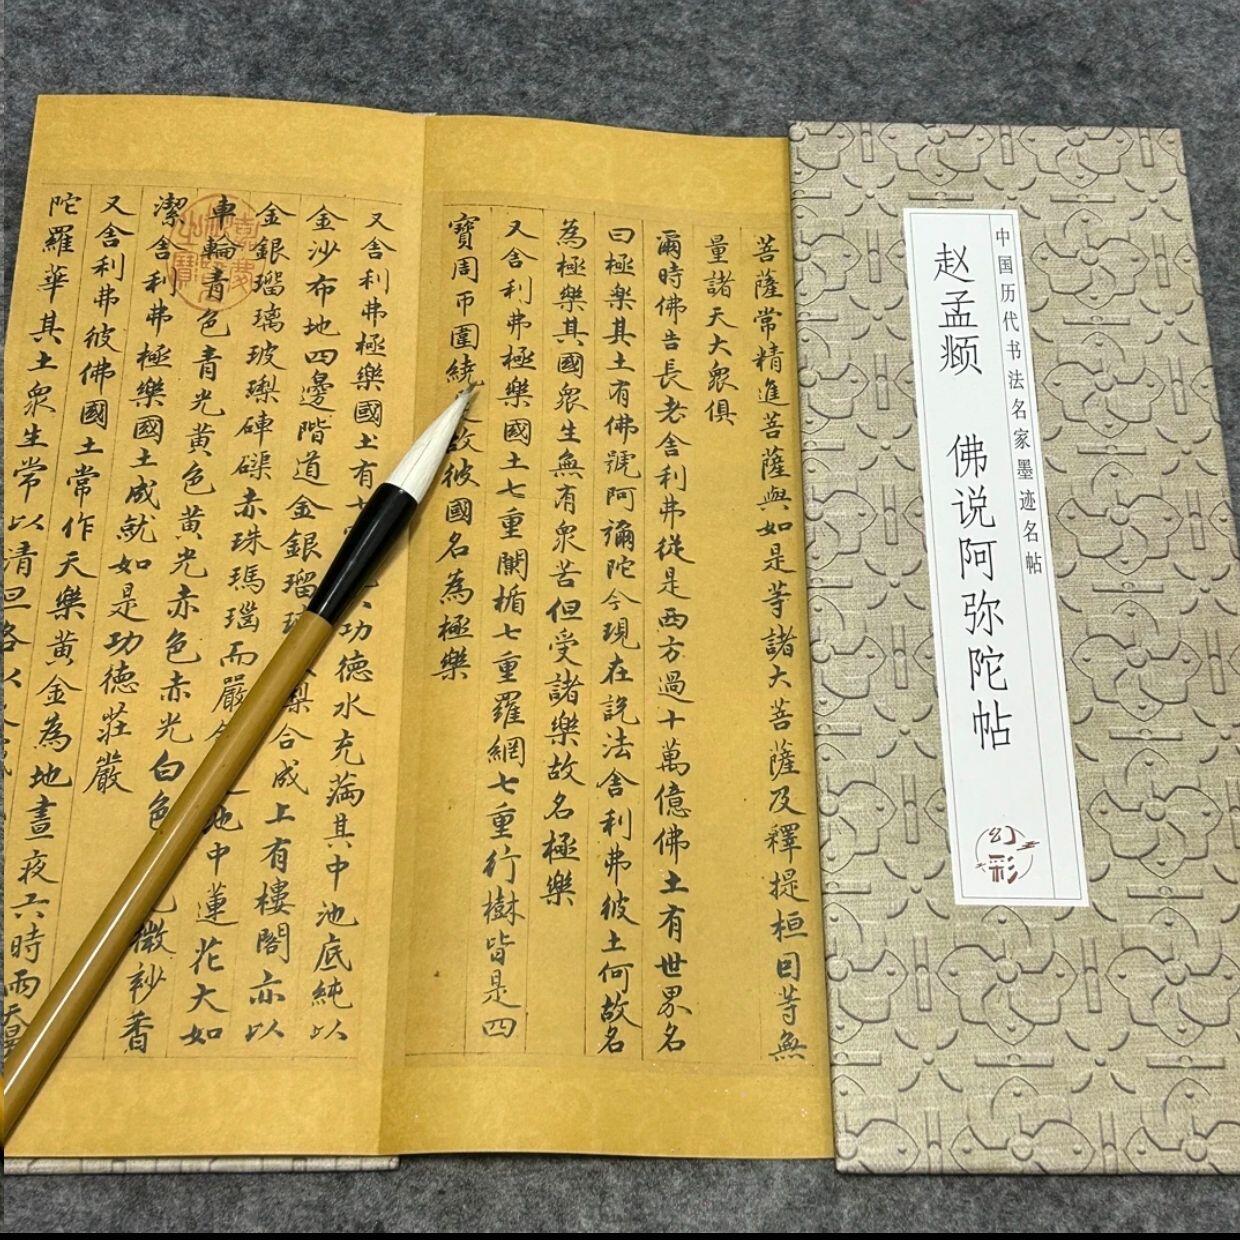 中国历代书法名家墨迹名帖
赵孟𫖯 佛说阿弥陀帖
幻彩
菩薩常精進菩薩與如是等諸大菩薩及釋提桓因等無
量諸天大衆俱
爾時佛告長老舍利弗從是西方過十萬億佛土有世界名
曰極樂其土有佛號阿彌陀今現在説法舍利弗彼土何故名
為極樂其國衆生無有衆苦但受諸樂故名極樂
又舍利弗極樂國土七重闌楯七重羅網七重行樹皆是四
寶周帀圍繞故彼國名為極樂
又舍利弗極樂國土有功德水充滿其中池底純以
金沙布地四邊階道金銀瑠瓈合成上有樓閣亦以
金銀瑠璃玻瓈硨磲赤珠瑪瑙而嚴池中蓮花大如
車輪青色青光黃色黃光赤色赤光白色微妙香
潔舍利弗極樂國土成就如是功德莊嚴
又舍利弗彼佛國土常作天樂黃金為地晝夜六時雨天
陀羅華其土衆生常以清旦各以